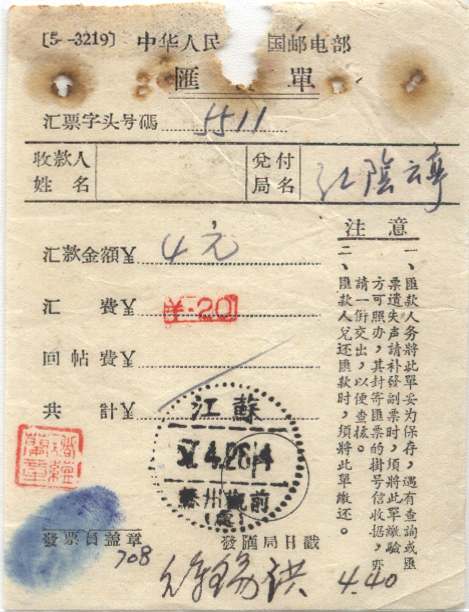 〔5-3219〕 中华人民 国邮电部
匯 單
汇票字头号碼 5511
收款人
姓 名
兌付
局名 江陰云亭
汇款金額￥ 4元
汇 費￥ ￥.20
回帖費￥
共 計￥
注 意
一、匯款人务將此單妥为保存,遇有查詢或匯
票遗失声請补發副票时,須將此單繳驗
方可照办,其封寄匯票的掛号信收据,亦
請一併交出,以便查核。
二、匯款人兌还匯款时,須將此單繳还。
江蘇
4.26.14
州 前
發票員盖章
發匯局日戳
708
4.40